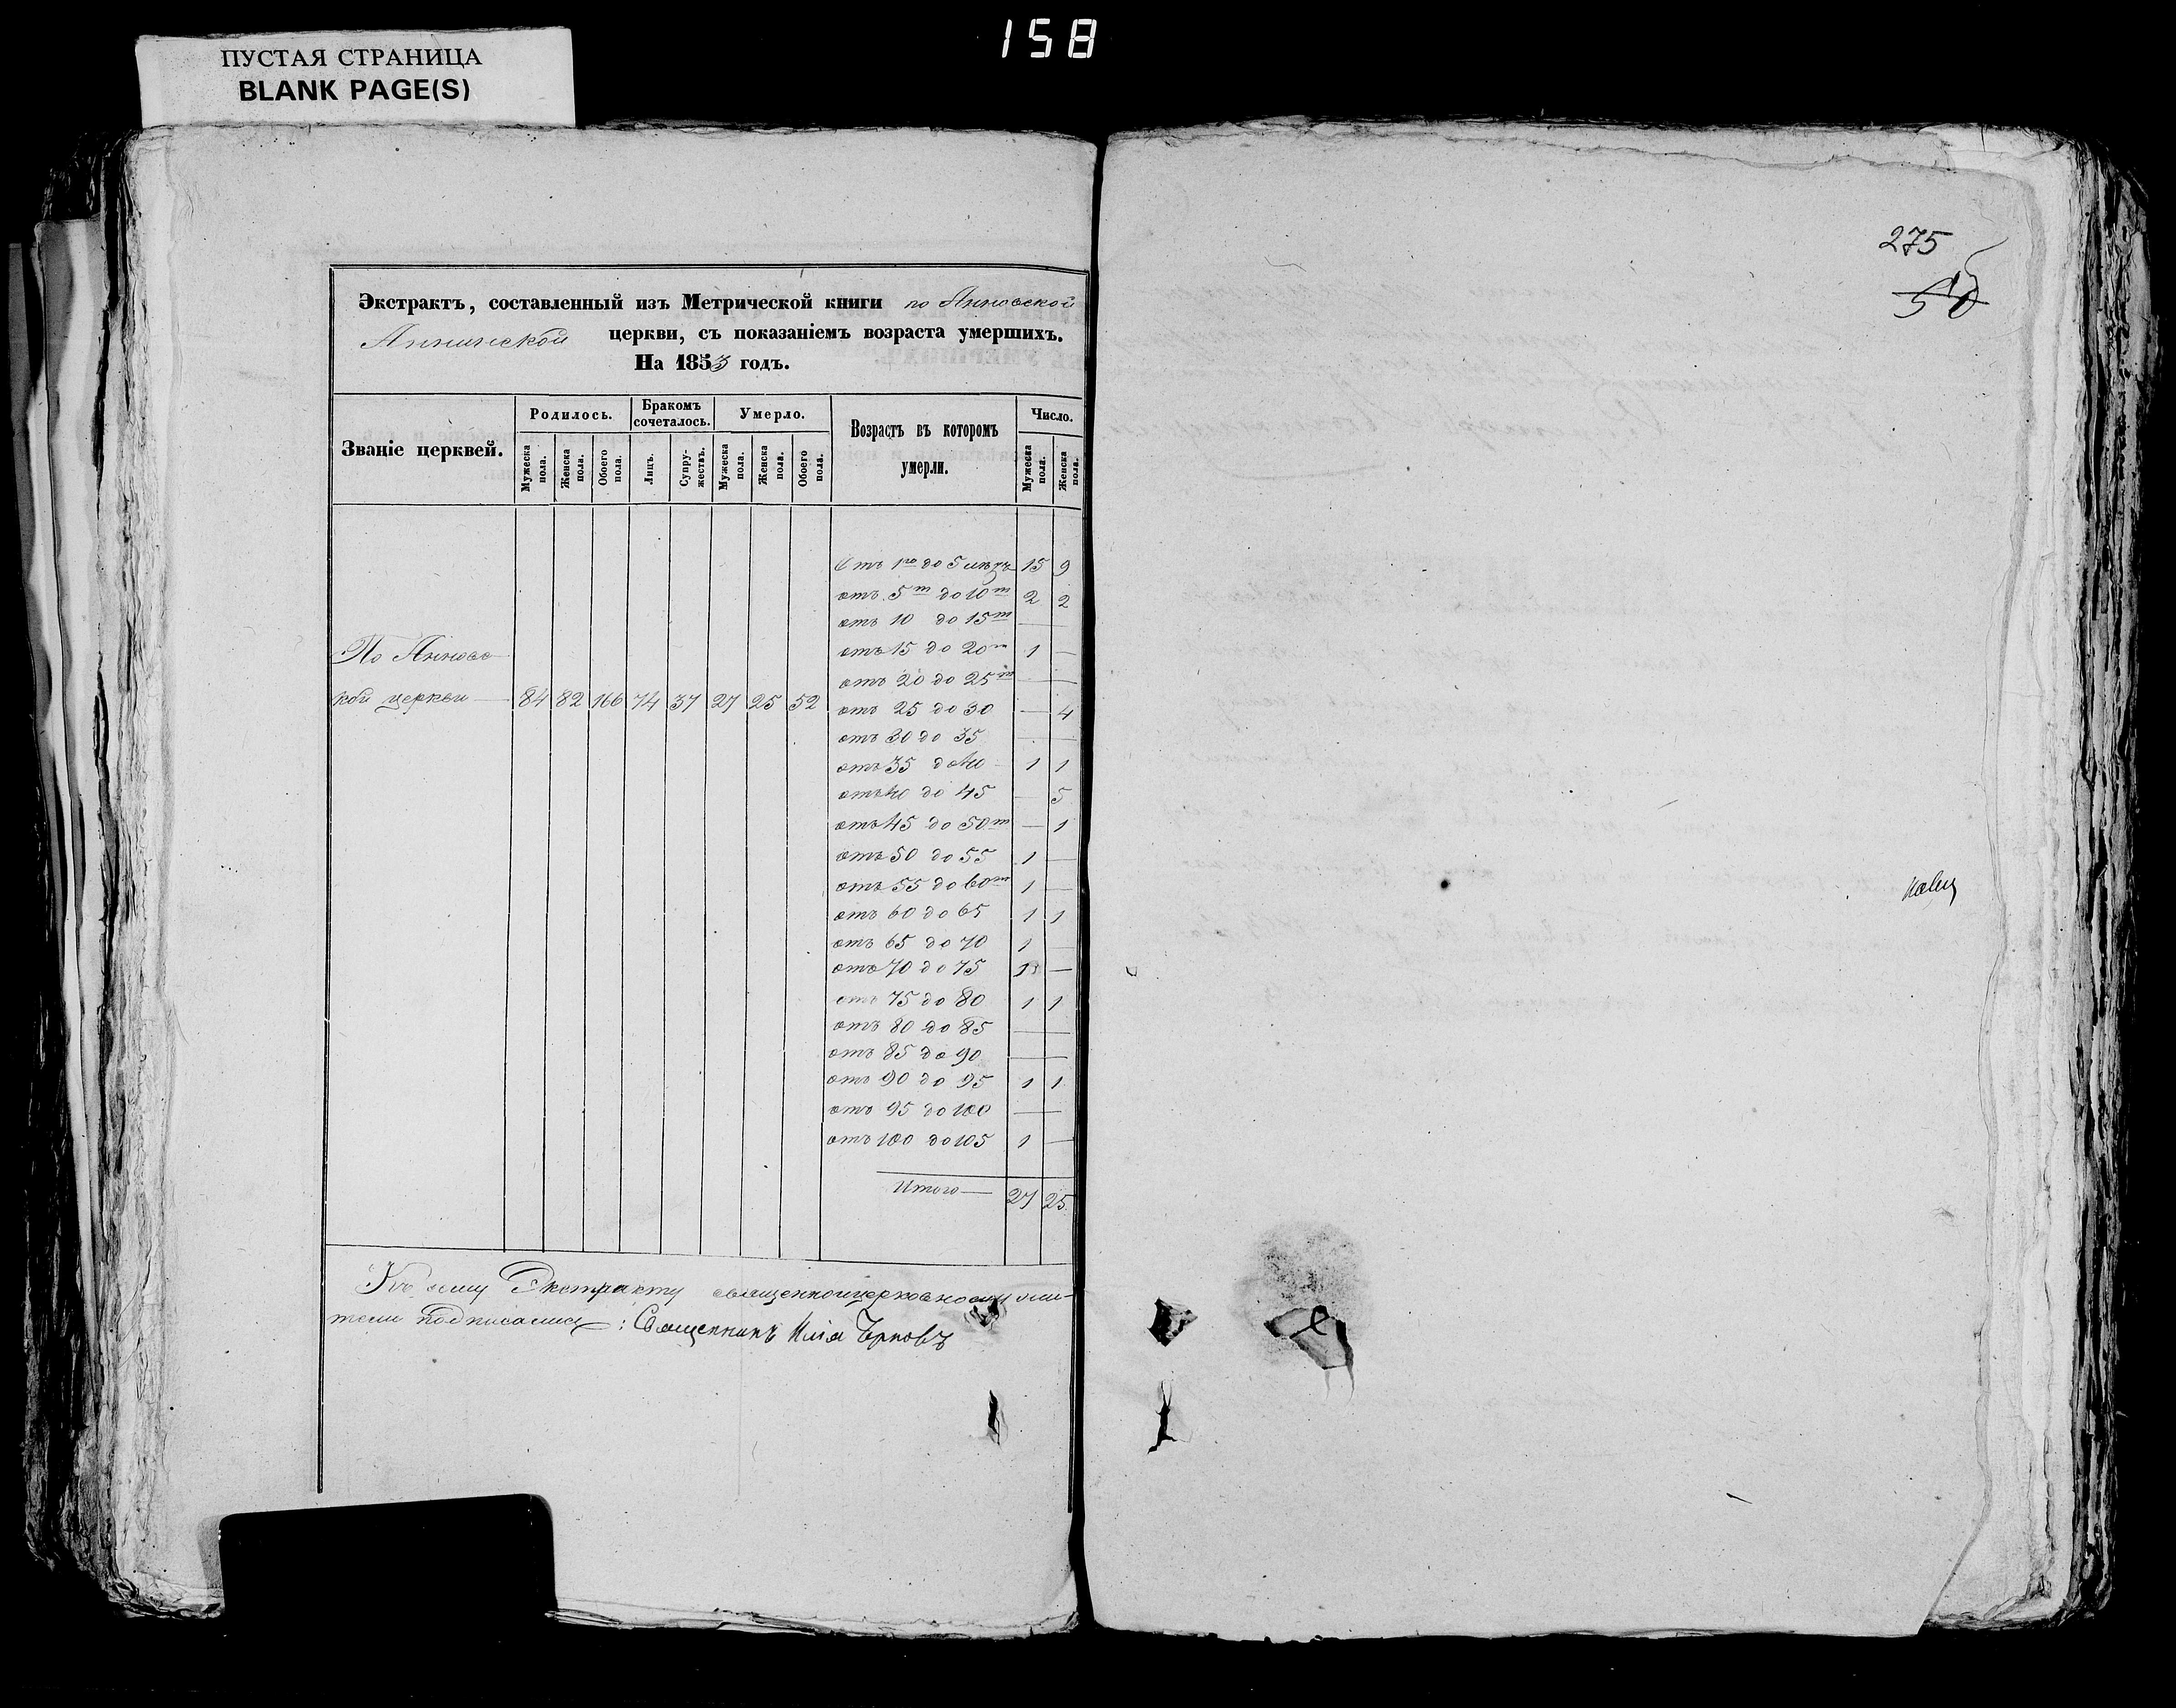 158
ПУСТАЯ СТРАНИЦА
BLANK PAGE(S)
Экстрактъ, составленный изъ Метрической книги по Анновской
Аннинской церкви, съ показаніемъ возраста умершихъ.
На 1853 годъ.
Званіе церквей. Родилось. Бракомъ сочеталось. Умерло. Возрастъ въ которомъ умерли. Число.
Мужеска пола. Женска пола. Обоего пола. Лицъ. Супружествъ. Мужеска пола. Женска пола. Обоего пола. Мужеска пола. Женска пола.
Отъ 1го до 5 15 9
отъ 5т до 10т 2 2
отъ 10 до 15т —
По Анновс
отъ 15 до 20т 1 —
отъ 20 до 25т — —
кой церкви — 84 82 166 74 37 27 25 52
отъ 25 до 30 — 4
отъ 30 до 35 —
отъ 35 до 40 1 1
отъ 40 до 45 — 5
отъ 45 до 50т — 1
отъ 50 до 55 1 —
отъ 55 до 60т 1 —
отъ 60 до 65 1 1
отъ 65 до 70 1 —
отъ 70 до 75 1 —
отъ 75 до 80 1 1
отъ 80 до 85 —
отъ 85 до 90 —
отъ 90 до 95 1 1
отъ 95 до 100 —
отъ 100 до 105 1 —
Итого — 27 25.
Къ сему Экстракту священноицерковнослужи-
тели подписались: Священникъ Илія
275